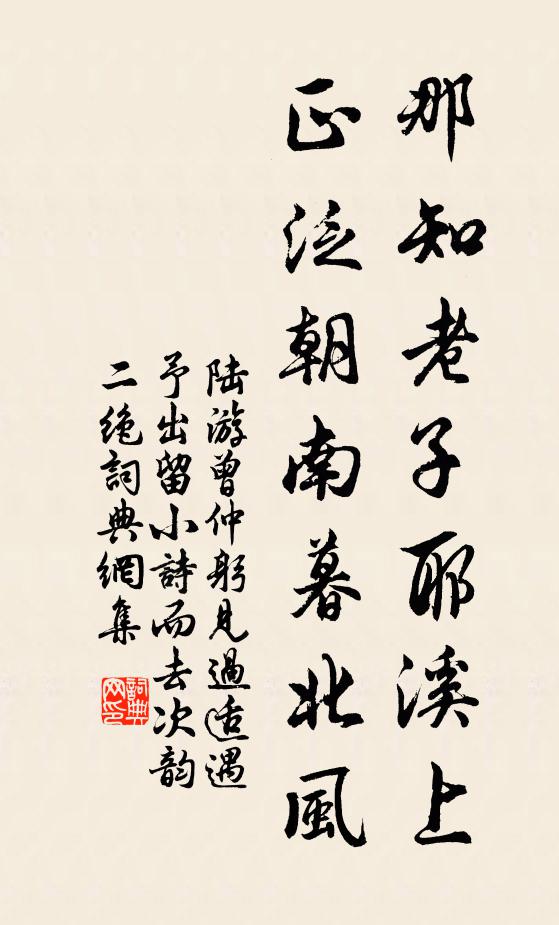 那知老子耶溪上
正泛朝南暮北風
陆游曾仲躬見過适遇
予出留小詩而去次韵
二绝詞典網集
詞典网印